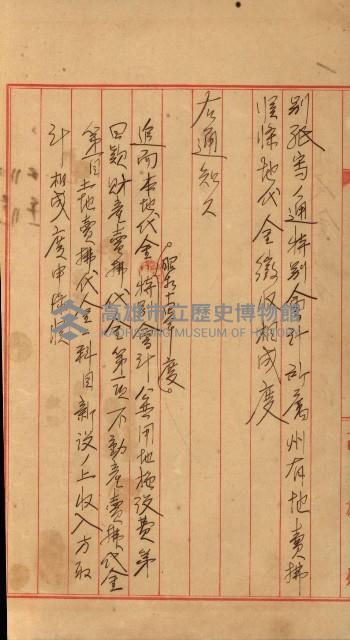 別紙写ノ通特別会計所属州有地賣拂
候條地代金徴収相成度
右通知ス
追而本地代金ハ特別會計
昭和十一年度
公共用地施設費第
款財産賣拂代金第一項不動産賣拂代金
第一目土地賣拂代金ノ科目新設ノ上收入方取
計相成度申添候
高雄市立歷史博物館
KAOHSIUNG MUSEUM OF HISTORY